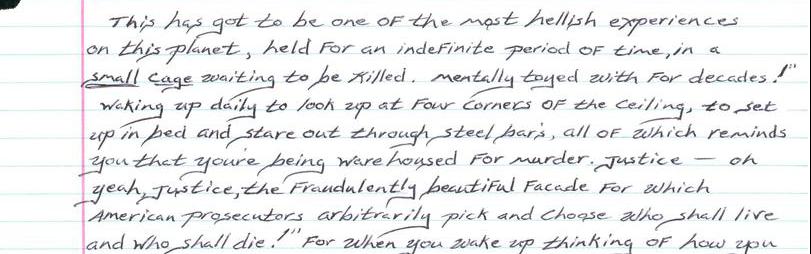 This has got to be one of the most hellish experiences
on this planet, held for an indefinite period of time, in a
small cage waiting to be killed. mentally toyed with for decades!"
Waking up daily to look up at four corners of the ceiling, to set
up in bed and stare out through steel bars, all of which reminds
you that youre being warehoused for murder. Justice — oh
yeah, Justice, the fraudulently beautiful facade for which
American prosecutors arbitrarily pick and choose who shall live
and who shall die!" For when you wake up thinking of how you